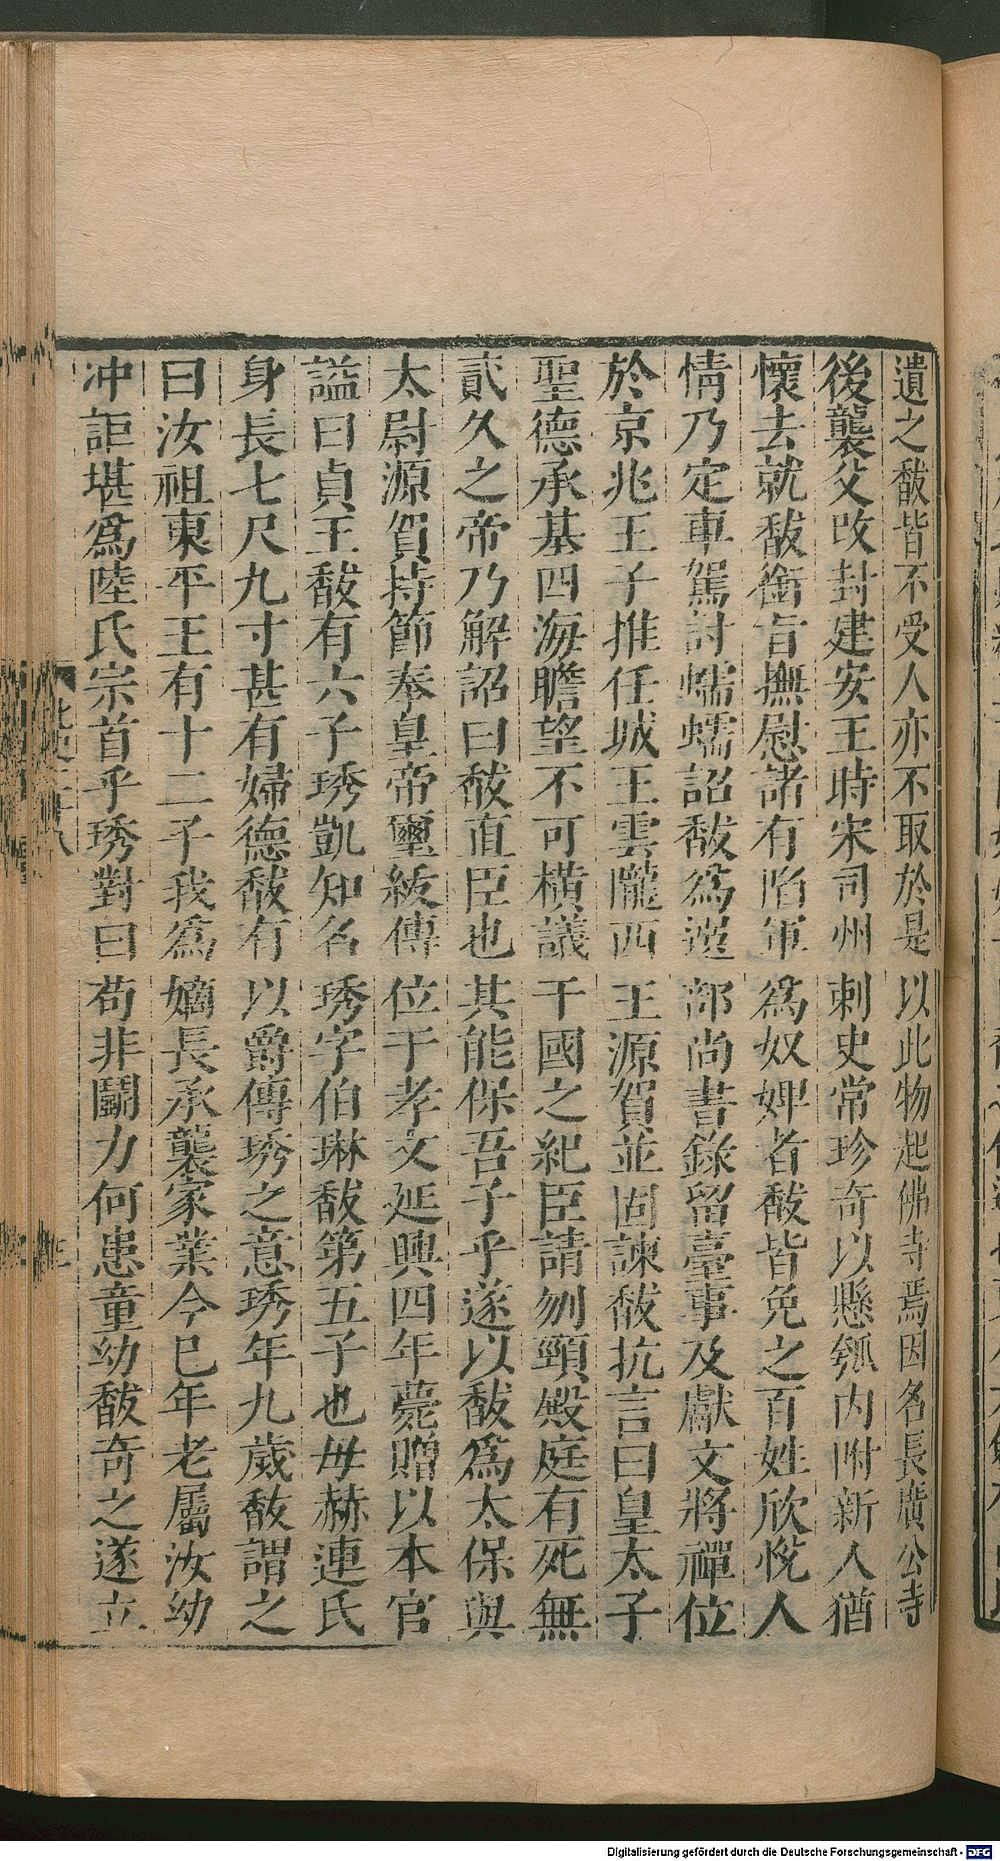 遺之馛皆不受人亦不取於是以此物起佛寺焉因名長廣公寺
後襲父改封建安王時宋司州刺史常珍奇以懸瓠内附新人猶
懷去就馛銜旨撫慰諸有陷軍為奴婢者馛皆免之百姓欣悅人
情乃定車駕討蠕蠕詔馛為選部尚書錄留臺事及獻文將禪位
於京兆王子推任城王雲隴西王源賀並固諫馛抗言曰皇太子
聖德承基四海瞻望不可橫議干國之紀臣請刎頸殿庭有死無
貳久之帝乃解詔曰馛直臣也其能保吾子乎遂以馛爲太保與
太尉源賀持節奉皇帝璽紱傳位于孝文延興四年薨贈以本官
謚曰貞王馛有六子琇凱知名琇字伯琳馛第五子也毋赫連氏
身長七尺九寸甚有婦德馛有以爵傳琇之意琇年九歲馛謂之
曰汝祖東平王有十二子我爲嫡長承襲家業今巳年老屬汝幼
冲詎堪爲陸氏宗首乎琇對曰苟非鬭力何患童幼馛奇之遂立
Digitalisierung gefördert durch die Deutsche Forschungsgemeinschaft - DFG